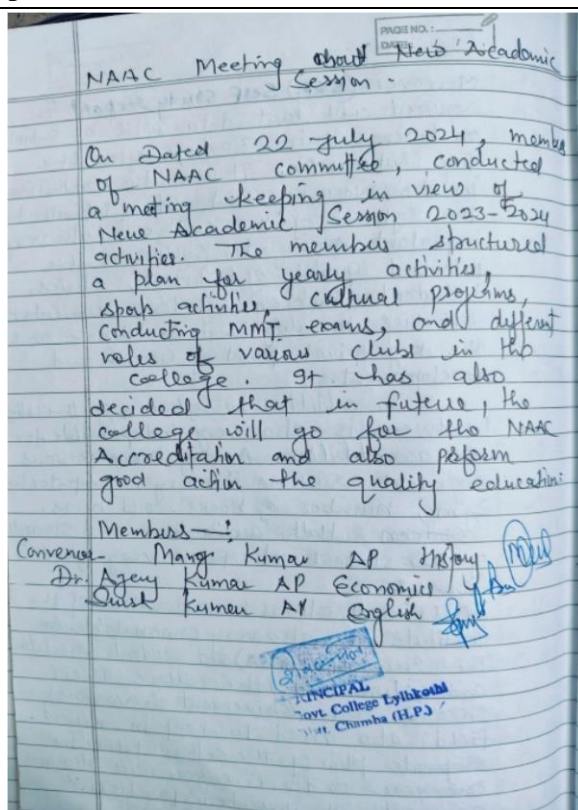 PAGE NO.:
DATE:
NAAC Meeting about New Academic
Session.
On Dated 22 July 2024, membes
of NAAC committee, conducted
a meeting keeping in view of
New Academic Session 2023-2024
activities. The members structured
a plan for yearly activities,
sports activities, cultural progrims,
conducting MMT exams, and different
roles of various clubs in the
college. It has also
decided that in future, the
college will go for the NAAC
Accreditation and also perform
good action the quality education.
Members—:
Convenor- Manoj Kumar AP History
Dr. Ajay Kumar AP Economics
Kumar AP English
PRINCIPAL
Govt. College Lylhkothi
Distt. Chamba (H.P.)